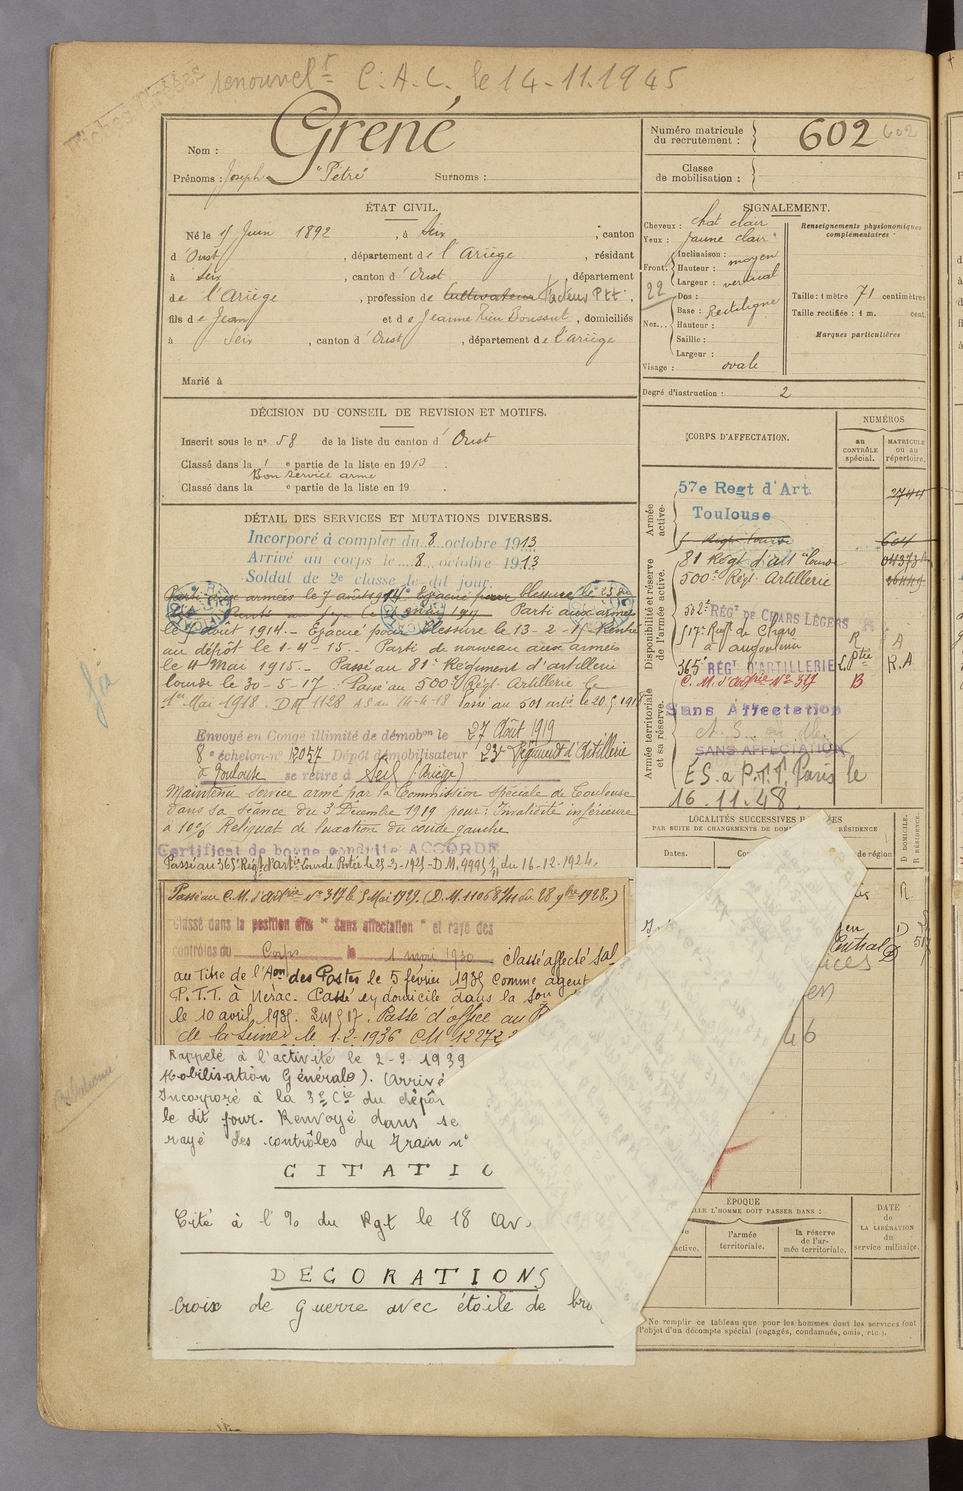 renouvelt C.A.C. le 14-11-1945
Grené
Nom :
Prénoms : Joseph "Pétré" Surnoms :
Numéro matricule du recrutement : 602 602
Classe de mobilisation :
ÉTAT CIVIL.
Né le 15 Juin 1892, à Seix, canton
d'Oust, département de l'Ariège, résidant
à Seix, canton d'Oust, département
de l'Ariège, profession de Cultivateur Facteur Ptt.
fils de Jean et de Jeanne Rieu Boussut, domiciliés
à Seix, canton d'Oust, département de l'Ariège
Marié à
SIGNALEMENT.
Cheveux : chat clair
Yeux : jaune clair
Front. Inclinaison : moyen
Hauteur : vertical
Largeur :
22
Nez... Dos : Rectiligne
Base :
Hauteur :
Saillie :
Largeur :
Visage : ovale
Renseignements physionomiques complémentaires :
Taille : 1 mètre 71 centimètres
Taille rectifiée : 1 m. cent.
Marques particulières
Degré d'instruction : 2
DÉCISION DU CONSEIL DE REVISION ET MOTIFS.
Inscrit sous le n° 58 de la liste du canton d'Oust
Classé dans la 1e partie de la liste en 1913.
Bon service armé
Classé dans la e partie de la liste en 19 .
DÉTAIL DES SERVICES ET MUTATIONS DIVERSES.
Incorporé à compter du 8 octobre 1913
Arrivé au corps le 8 octobre 1913
Soldat de 2e classe le dit jour.
Parti aux armées le 7 août 1914 Evacué pour blessure le
Parti aux armées
le 7 août 1914.- Evacué pour blessure le 13-2-15 Rentré
au dépôt le 1-4-15.. Parti de nouveau aux armées
le 4 Mai 1915.- Passé au 81e Régiment d'artillerie
lourde le 30-5-17. Passé au 500e Régt. Artillerie le
1er Mai 1918. DM 1128 A.S du 14-4-18 Passé au 501 artie le 20.5 1918
Envoyé en Congé illimité de démobon le 27 Août 1919
8e échelon-n° 12037 Dépôt démobilisateur 23e Régiment d'Artillerie
à Toulouse se retire à Seix (Ariège)
Maintenu service armé par la Commission Spéciale de Toulouse
dans sa séance du 3 Décembre 1919 pour : Invalidité inférieure
à 10% Reliquat de luxation du coude gauche
Certificat de bonne conduite ACCORDÉ
Passé au 365e Régt d'artie Lourde Portée le 25-3-1925-D.M. 9995 du 16-12-1924.
Passé au C.M. d'Artrie N° 317 le 5 Mai 1929. (D.M. 11068 du 28 9bre 1928.)
Classé dans la position dite "Sans affectation" et rayé des
contrôles du Corps le 1 mai 1930. classé affecté spl
au Titre de l'Aon des Postes le 5 février 1935 comme agent
P.T.T. à Nérac. Passé en domicile dans la
le 10 avril 1935. Passé d'office au
de la Seine le 1-2-1936
Rappelé à l'activité le 2-9-1939
Mobilisation Générale). Arrivé
Incorporé à la 3e Cie du dépôt
le dit jour. Renvoyé dans se
rayé des contrôles du Train n°
CITATIO
Cité à l'% du Rgt le 18 Av.
DECORATIONS
Croix de Guerre avec étoile de bro
CORPS D'AFFECTATION.
NUMÉROS
au CONTRÔLE spécial.
MATRICULE ou au répertoire.
Armée active.
57e Regt d'Art.
Toulouse
Disponibilité et réserve de l'armée active.
81 Régt d'art lourde
500e Régt. Artillerie
502e RÉGT DE CHARS LÉGERS R
517e Regt de Chars R A
à Angoulême
365 RÉGT D'ARTILLERIE L.Ptée R.A
C.M. d'Artrie N° 317 B
Armée territoriale et sa réserve.
Sans Affectation
SANS AFFECTATION
E.S. à P.T.T. Paris le
16.11.48.
LOCALITÉS SUCCESSIVES
PAR SUITE DE CHANGEMENTS DE RÉSIDENCE
Dates.
de région
D DOMICILE.
R RÉSIDENCE.
R.
D
Central D
46
ÉPOQUE
LLE L'HOMME DOIT PASSER DANS :
active.
l'armée territoriale.
la réserve de l'armée territoriale.
DATE de LA LIBÉRATION du service militaire.
Ne remplir ce tableau que pour les hommes dont les services font
l'objet d'un décompte spécial (engagés, condamnés, omis, etc.).